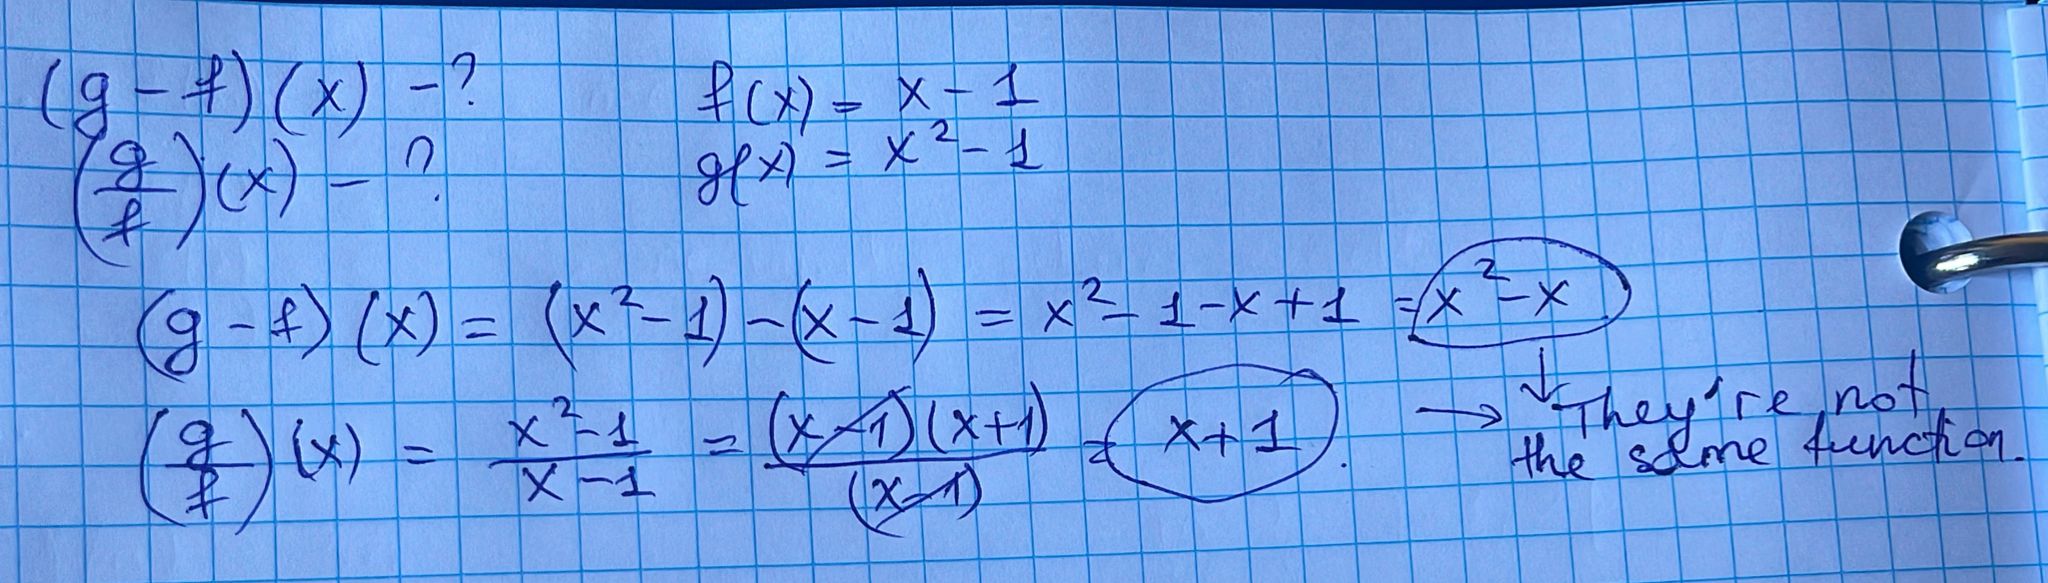 (g - f)(x) - ?    f(x) = x - 1
(g/f)(x) - ?    g(x) = x² - 1
(g - f)(x) = (x² - 1) - (x - 1) = x² - 1 - x + 1 = x² - x
(g/f)(x) = (x² - 1)/(x - 1) = ((x - 1)(x + 1))/((x - 1)) = x + 1. → ↓ They're not
the same function.